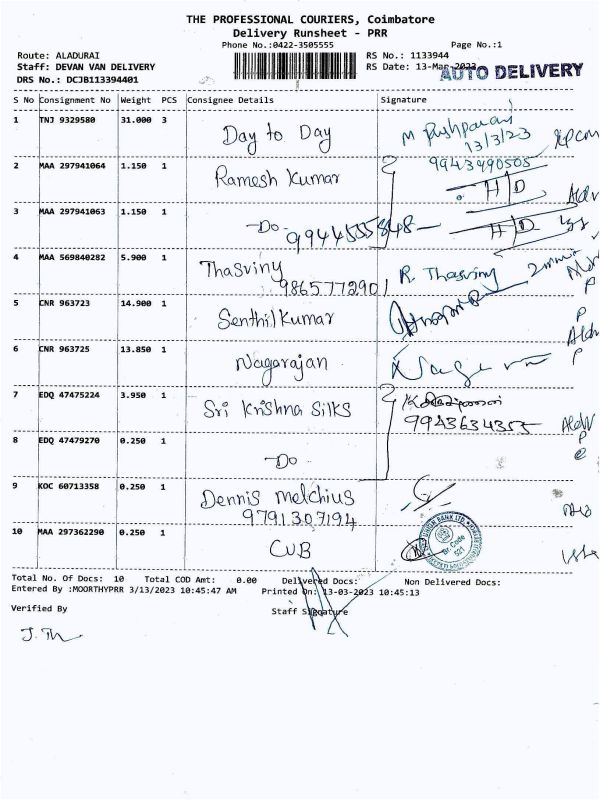 THE PROFESSIONAL COURIERS, Coimbatore
Delivery Runsheet - PRR
Phone No.:0422-3505555 Page No.:1
Route: ALADURAI RS No.: 1133944
Staff: DEVAN VAN DELIVERY RS Date: 13-Mar-2023
AUTO DELIVERY
DRS No.: DCJB113394401
S No Consignment No Weight PCS Consignee Details Signature
1 TNJ 9329580 31.000 3 Day to Day M Pushparani
13/3/23
9943490505
2 MAA 297941064 1.150 1 Ramesh Kumar H/D
3 MAA 297941063 1.150 1 -Do- 9944555848 H/D
4 MAA 569840282 5.900 1 Thasviny R. Thasviny
9865772901
5 CNR 963723 14.900 1 Senthil Kumar
6 CNR 963725 13.850 1 Nagarajan
7 EDQ 47475224 3.950 1 Sri Krishna Silks
9943634355
8 EDQ 47479270 0.250 1 -Do-
9 KOC 60713358 0.250 1 Dennis Melchius
9791307194
10 MAA 297362290 0.250 1 CUB
Total No. Of Docs: 10 Total COD Amt: 0.00 Delivered Docs: Non Delivered Docs:
Entered By :MOORTHYPRR 3/13/2023 10:45:47 AM Printed On: 13-03-2023 10:45:13
Verified By Staff Signature